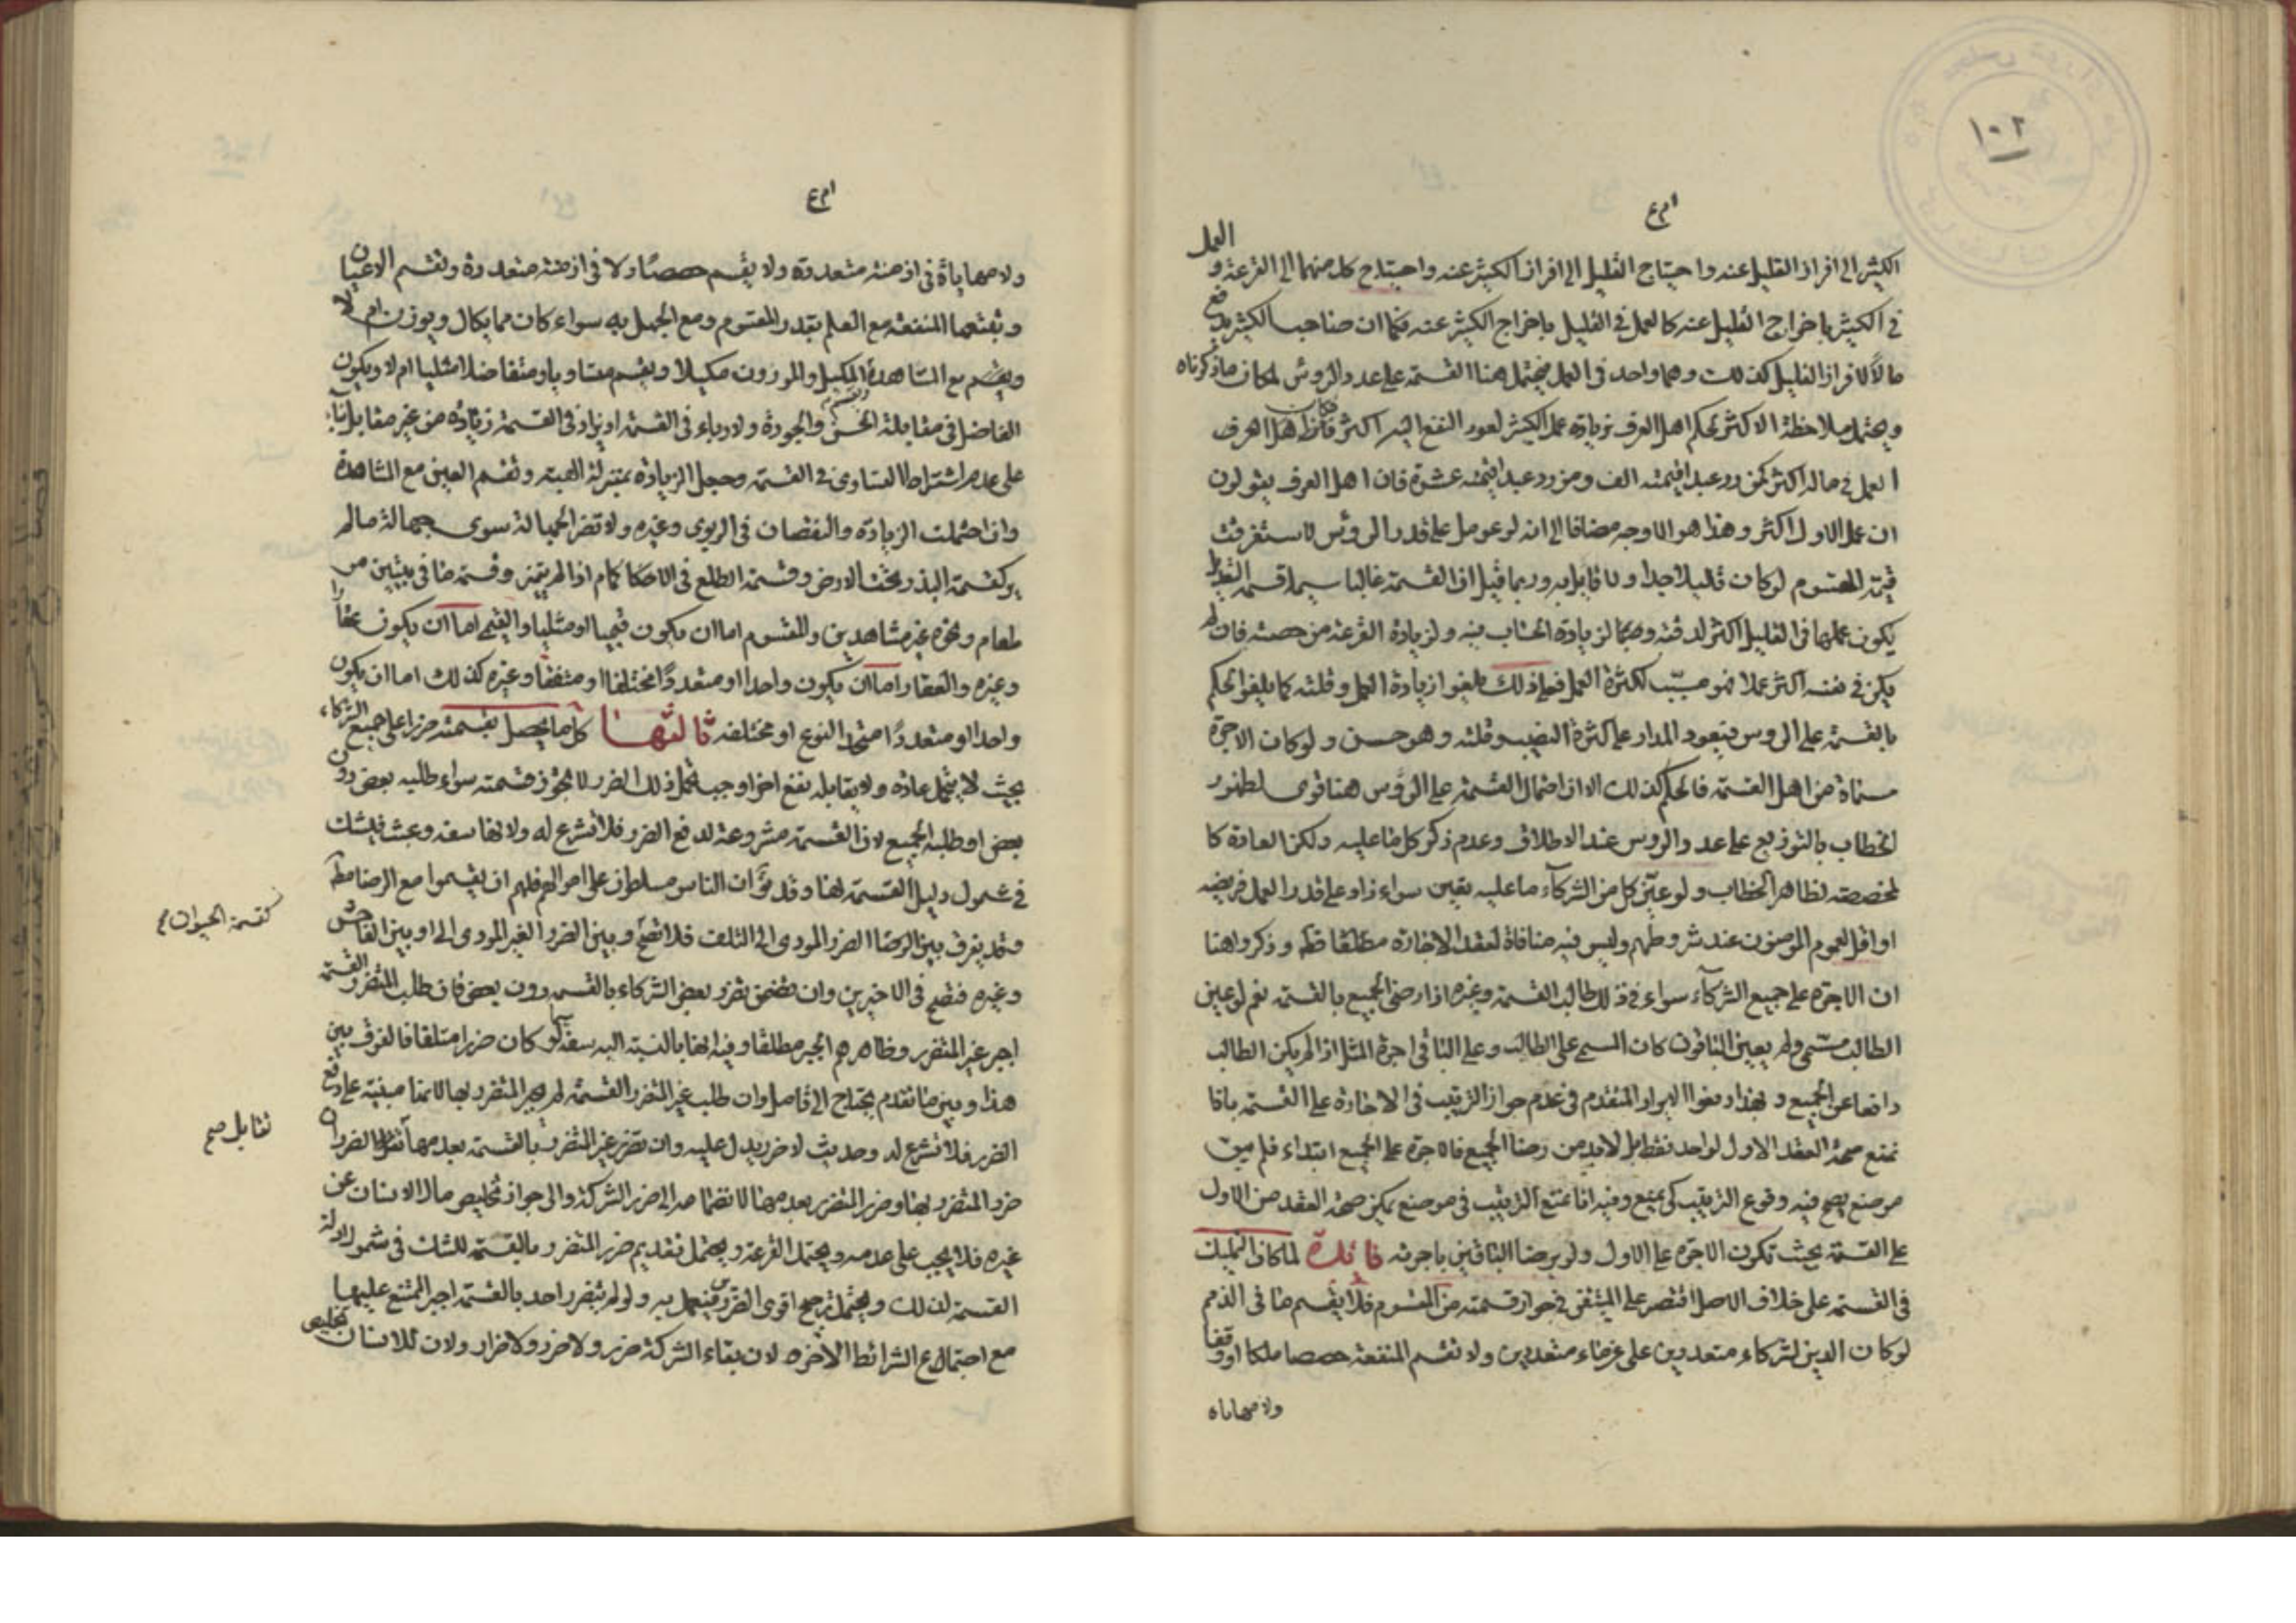 ١٠٢
الكثير الى افراز القليل عنه واحتياج القليل الى افراز الكثير عنه واحتياج كل منهما الى القرعة و العمل
في الكثير باخراج القليل عنه كالعمل في القليل باخراج الكثير عنه فكما ان صاحب الكثير يدفع
مالا لافراز القليل كذلك وهما واحد في العمل فيحتمل هنا القسمة على عدد الروس لمكان ما ذكرناه
ويحتمل ملاحظة الاكثر لحكم اهل العرف بزيادة عمل الكثير لعود النفع اليه اكثر اهل العرف
العمل في ماله اكثر كمن رد عبدا قيمته الف ومن رد عبدا قيمته عشرة فان اهل العرف يقولون
ان عمل الاول اكثر وهذا هو الاوجه مضافا الى انه لو عومل على قدر الروس لاستغرقت
قيمة المقسوم لو كان قليلا جدا ولا قابل به وربما قيل ان القسمة غالبا سيما قسمة
يكون عملها في القليل اكثر لدقته وربما لزيادة الحساب فيه ولزيادة القرعة من حصته فان لم
يكن في نفسه اكثر عملا فهو سبب لكثرة العمل فعلى ذلك يلغوا زيادة العمل وقلته كما يلغوا الحكم
بالقسمة على الروس فيعود المدار على كثرة النصيب وقلته وهو حسن ولو كان الاجرة
مسماة من اهل القسمة فالحكم كذلك الا ان احتمال القسمة على الروس هنا قوى لظهور
الخطاب بالتوزيع على عدد الروس عند الاطلاق وعدم ذكر كل ما عليه ولكن العادة كا
لمخصصة لظاهر الخطاب ولو عين كل من الشركاء ما عليه يقين سواء زاد على قدر العمل فريضه
او اقل لعموم المومنون عند شروطهم وليس فيه منافاة لعقد الاجارة مطلقا وذكروا هنا
ان الاجرة على جميع الشركاء سواء في ذلك طالب القسمة وغيره اذا رضى الجميع بالقسمة نعم لو عين
الطالب مسمى ولم يعين الباقون كان المسمى على الطالب وعلى الباقى اجرة المثل اذا لم يكن الطالب
دافعا عن الجميع وبهذا دفعوا الايراد المتقدم في عدم جواز الترتيب في الاجارة على القسمة بانا
نمنع صحة العقد الاول لواحد فقط بل لابد من رضا الجميع فالاجرة على الجميع ابتداء فلم يبق
موضع يصح فيه وقوع الترتيب كى يمنع وفيه انا نمنع الترتيب في موضع يمكن صحة العقد من الاول
على القسمة بحيث تكون الاجرة على الاول ولو برضا الباقين باجرته فائدة لما كان التمليك
في القسمة على خلاف الاصل اقتصر على المتيقن في جواز قسمته من المقسوم فلا يقسم ما في الذمم
لو كان الدين لشركاء متعددين على غرماء متعددين ولا تقسم المنفعة حصصا ملكا او وقفا
ولا مهاياة
ولا مهاياة في ازمنة متعددة ولا يقسم حصصا ولا في ازمنة متعددة وتقسم الاعيان
وتتبعها المنفعة مع العلم بقدر المقسوم ومع الجهل به سواء كان مما يكال ويوزن ام لا
ويقسم مع المشاهدة المكيل والموزون مكيلا ويقسم متساويا ومتفاضلا مثليا ام لا ويكون
الفاضل في مقابلة الحسن والجودة ولا رباء في القسمة او يزاد في القسمة زيادة من غير مقابل بناء
على عدم اشتراط التساوى في القسمة وجعل الزيادة بمنزلة الهبة وتقسم العين مع المشاهدة
وان احتملت الزيادة والنقصان في الربوى وغيره ولا تضر الجهالة سوى جهالة مالم
ير كقسمة البذر تحت الارض وقسمة الطلع في الاكمام اذا لم يتميز وقسمة ما في بيتين من
طعام ونحوه غير مشاهدين والمقسوم اما ان يكون قيميا او مثليا والقيمى اما ان يكون عقارا
وغيره والعقار اما ان يكون واحدا او متعددا مختلفا او متفقا وغيره كذلك اما ان يكون
واحدا او متعددا متحد النوع او مختلفه ثالثها كل ما يحصل بقسمته ضرر على جميع الشركاء
بحيث لا يتحمل عادة ولا يقابله نفع اخر اوجب تحمل ذلك الضرر لا تجوز قسمته سواء طلبه بعض دون
بعض او طلبه الجميع لان القسمة مشروعة لدفع الضرر فلا تشرع له ولانها سفه وعبث فيشك
في شمول دليل القسمة لها وقد يق ان الناس مسلطون على اموالهم فلهم ان يقسموا مع الرضا مطلقا
وقد يفرق بين الرضا الضرر المودى الى التلف فلا تصح وبين الضرر الغير المودى اليه او بين الفاحش
كقسمة الحيوان
وغيره فتصح في الاخيرين وان تضمن تضرر بعض الشركاء بالقسمة دون بعض فان طلب المتضرر القسمة
اجبر غير المتضرر وظاهرهم الجبر مطلقا وفيه انها بالنسبة اليه سفه لو كان ضررا متلفا فالفرق بين
هذا وبين ما تقدم يحتاج الى تامل وان طلب غير المتضرر القسمة لم يجبر المتضرر بها لانها مبنية على دفع
الضرر فلا تشرع له وحديث لا ضرر يدل عليه وان تضرر غير المتضرر بالقسمة بعدمها تقابل الضرران
تقابل صح
ضرر المتضرر بها وضرر المتضرر بعدمها لانضمامه الى ضرر الشركة والى جواز تخليص مال الانسان عن
غيره فلا يجب على عدمه ويحتمل القرعة ويحتمل تقديم ضرر المتضرر بالقسمة للشك في شمول ادلة
القسمة لذلك ويحتمل ترجيح اقوى الضررين فيعمل به ولو لم يتضرر احد بالقسمة اجبر الممتنع عليها
مع اجتماع الشرائط الاخره لان بقاء الشركة ضرر ولا ضرر ولا ضرار ولان للانسان تخليص